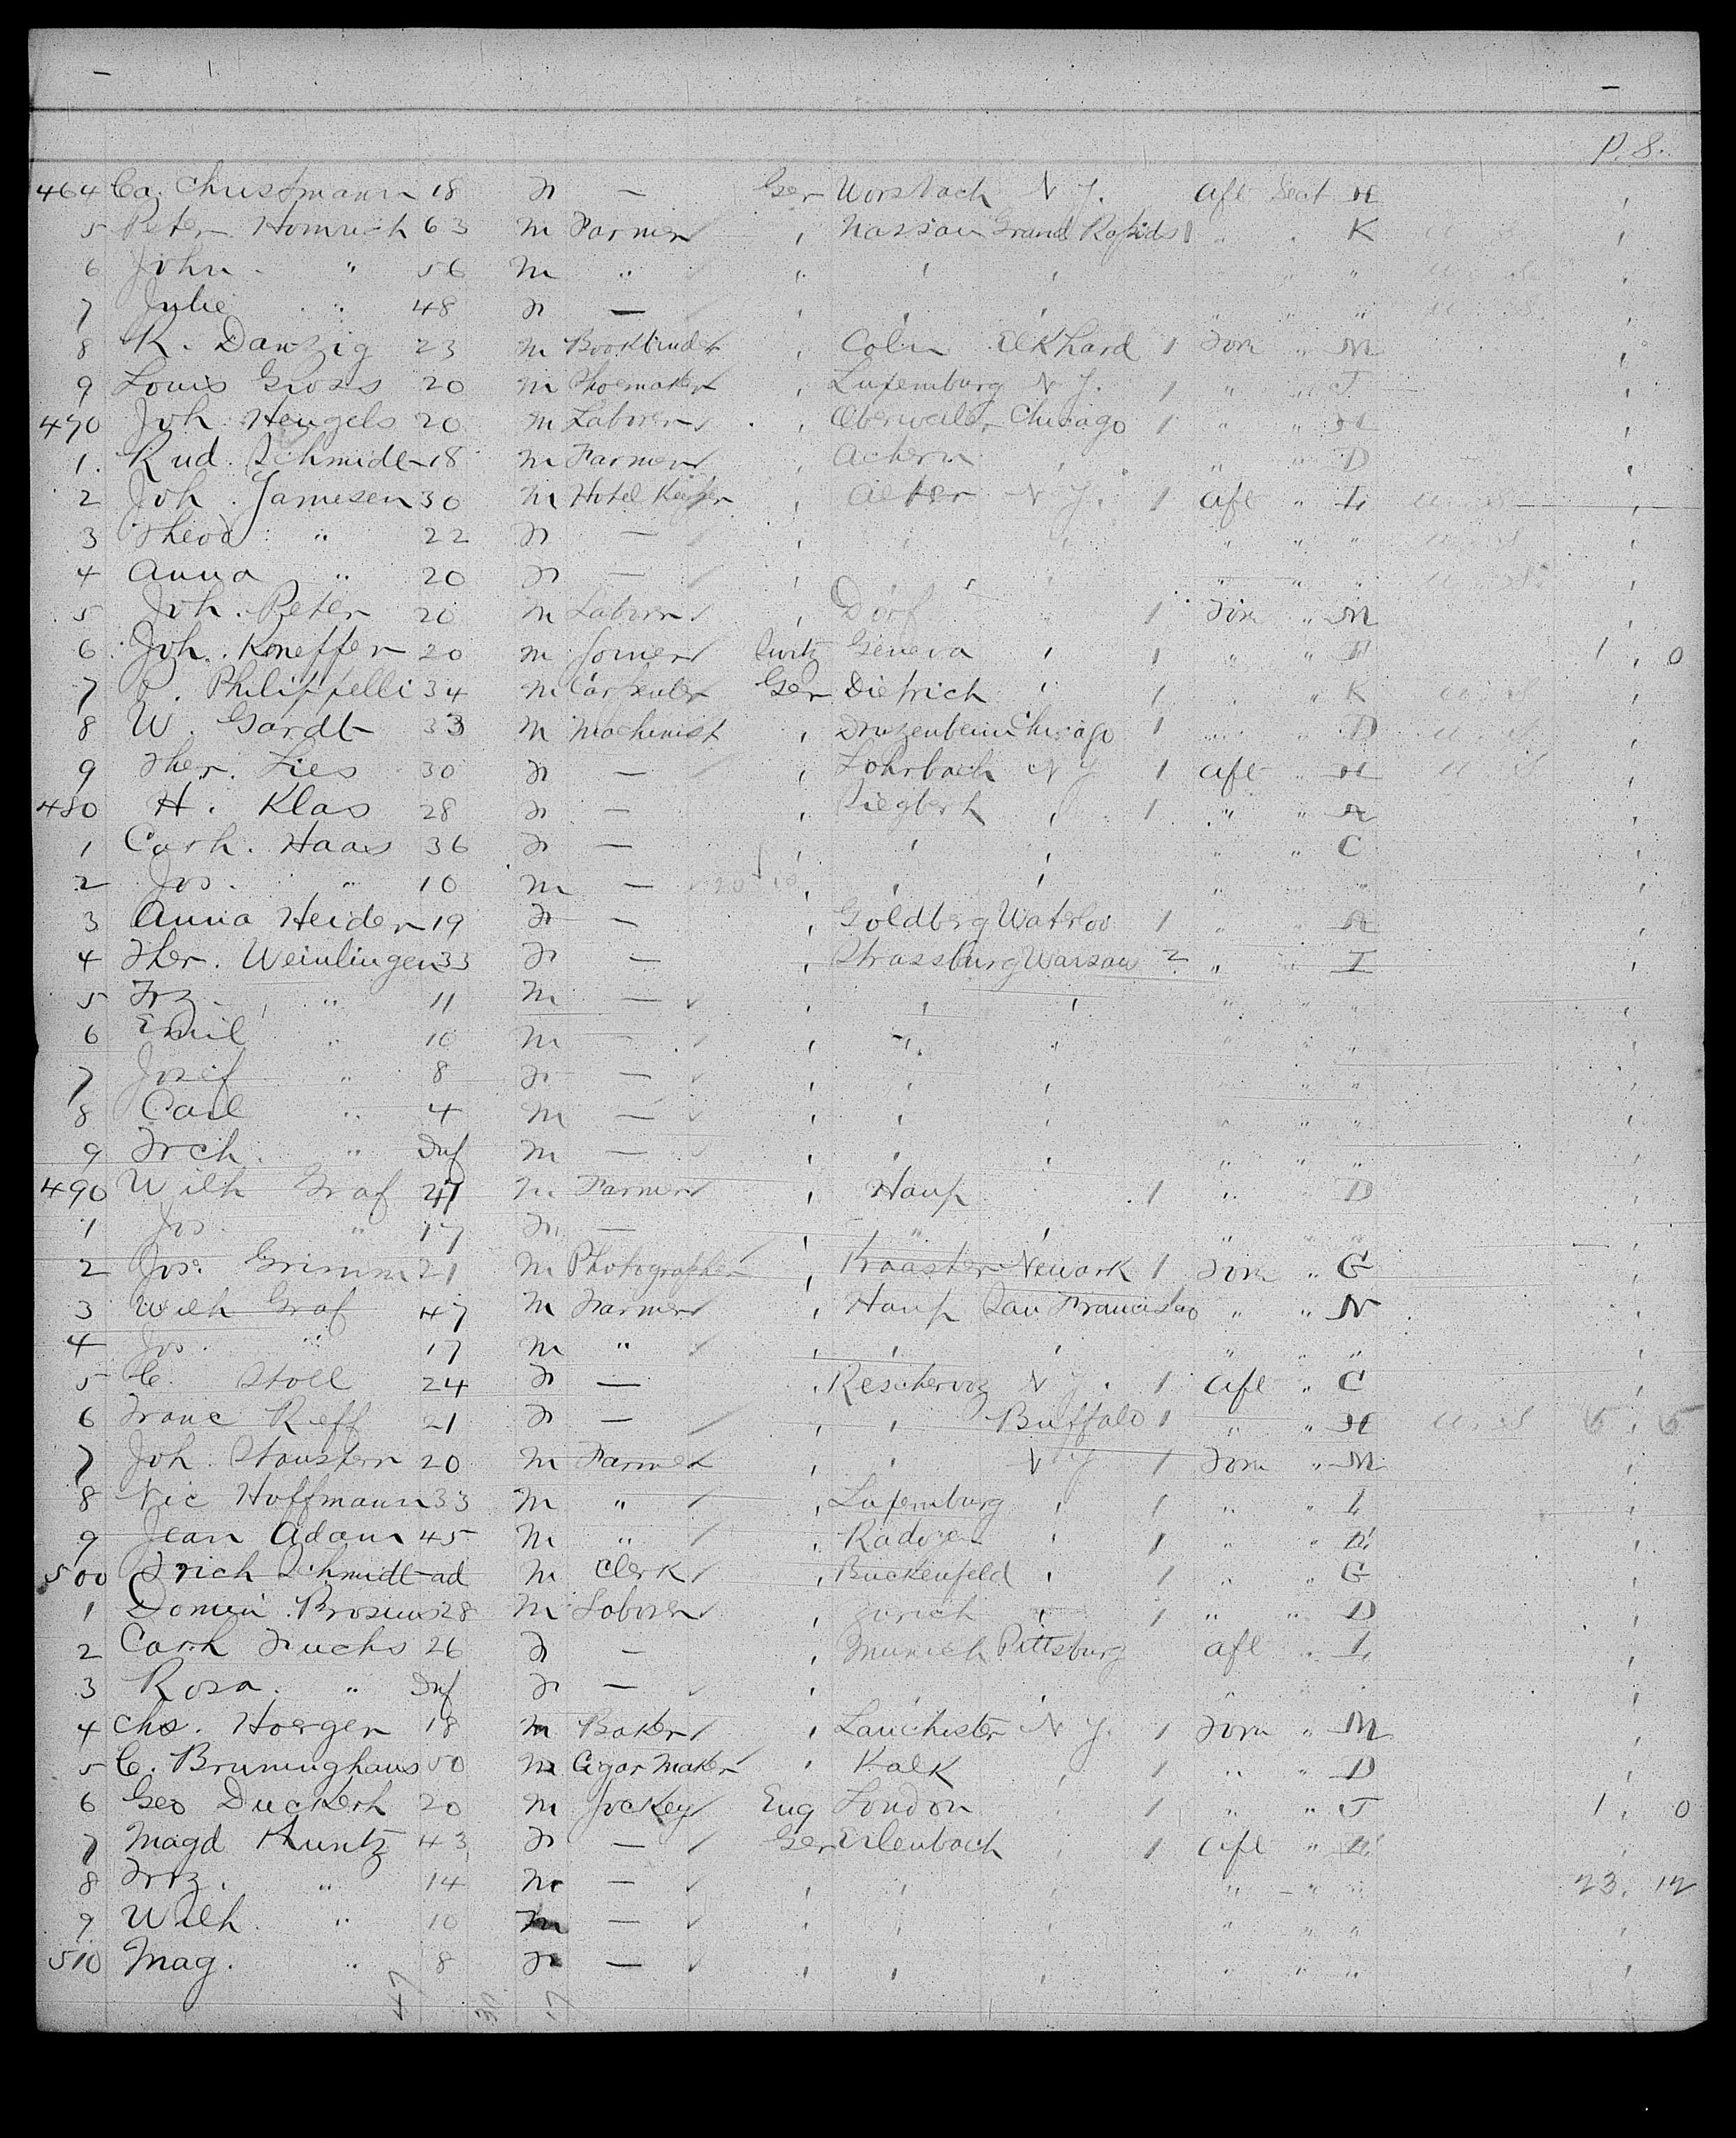 P. 8.
464 Ca. Christmann 18 F — Ger Worsbach N Y. Aft Sect H
5 Peter Homrich 63 M Farmer , Nassau Grand Rapids 1 " " K U. S.
6 John " 56 M " , , , " " U. S.
7 Julie " 48 F — , , , " " " U. S.
8 K. Danzig 23 M Bookbinder , Coln Elkhard 1 For " M
9 Louis Gross 20 M Shoemaker , Luxemburg N Y. 1 " " J
470 Joh Hengels 20 M Laborer , Oberweiler Chicago 1 " " H
1 Rud. Schmidt 18 M Farmer , Achern , " " D
2 Joh. Jamesen 30 M Hotel Keeper , N Y. 1 Aft " L U. S
3 Theod " 22 F — , , , " " " U. S
4 Anna " 20 F — , , , " " " U. S.
5 Joh. Peter 20 M Laborer , Dorf " 1 For " M
6 Joh. Kneffer 20 M Joiner Switz Geneva , 1 " " 1, 0
7 P. Philippelli 34 M Carpenter Ger Dietrich , 1 " " K U. S
8 W. Gardt 33 M Machinist , Druzenheim Chicago 1 " " D U. S
9 Ther. Lies 30 F — , Lohrbach N Y 1 Aft " H U. S
480 H. Klas 28 F — , Siegberk , 1 " "
1 Cath. Haas 36 F — , , , " " C
2 Jos. " 10 M — , , , " " "
3 Anna Heider 19 F — , Goldberg Waterloo 1 " "
4 Ther. Weinlinger 33 F — , Strassburg Warsaw 2 " " I
5 Frz. " 11 M — , , , " " "
6 Emil " 10 M — , " " " " "
7 Josef " 8 — , , , " "
8 Carl " 4 M — , , , " " "
9 Frch. " Inf M — , , , " " "
490 Wilh Graf 47 M Farmer , Haup 1 " " D
1 Jos. " 17 — , " , " " "
2 Jos. Grimm 21 M Photographer , Newark 1 For " G
3 Wilh Graf 47 M Farmer , Haup San Francisco " " N
4 Jos. " 17 M " , , , " " "
5 C. Stoll 24 F — , N Y. 1 Aft " C
6 Franc Reff 21 F — , , Buffalo 1 " " H U. S 5, 5
7 Joh. 20 M Farmer , , N Y 1 For " M
8 Nic Hoffmann 33 M " , Luxemburg , 1 " " L
9 Jean Adam 45 M " , , 1 " "
500 Frich Schmidt ad M Clerk , Buckenfeld , 1 " " G
1 28 M Laborer , Zurich , 1 " " D
2 Cath Fuchs 26 F — , Munich Pittsburg Aft " L
3 Rosa. " Inf F — , , , " " "
4 Chs. Hoerger 18 M Baker , N Y. 1 For " M
5 C. Bruninghaus 50 M Cigar Maker , Kalk , 1 " " D
6 Geo Duckerh 20 M Jockey Eng London , 1 " " J 1, 0
7 Magd Kuntz 43 F — Ger Erlenbach , 1 Aft "
8 Frz. " 14 M — , , , " " " 23, 12
9 Wilh. " 10 M — , , , " " "
510 Mag. " 8 F — , , , " " "
47 30 17